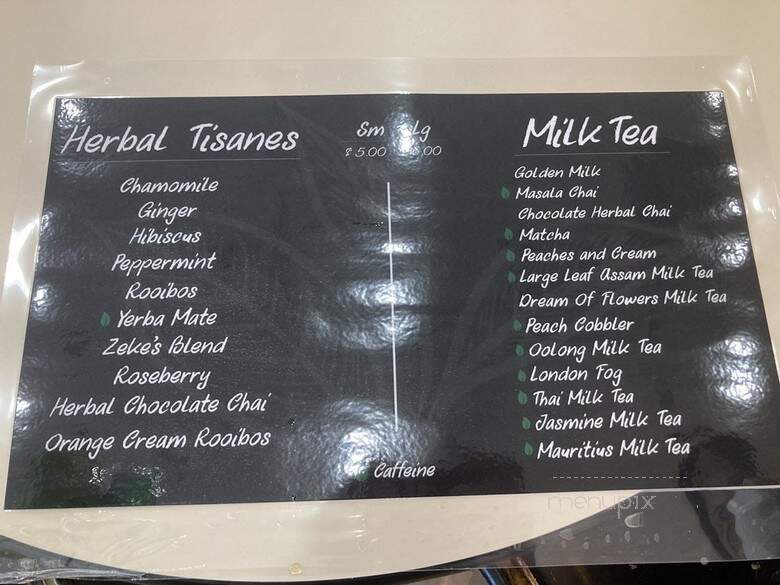 Herbal Tisanes
Chamomile
Ginger
Hibiscus
Peppermint
Rooibos
Yerba Mate
Zeke's Blend
Roseberry
Herbal Chocolate Chai
Orange Cream Rooibos
Sm Lg
$ 5.00 .00
Caffeine
Milk Tea
Golden Milk
Masala Chai
Chocolate Herbal Chai
Matcha
Peaches and Cream
Large Leaf Assam Milk Tea
Dream Of Flowers Milk Tea
Peach Cobbler
Oolong Milk Tea
London Fog
Thai Milk Tea
Jasmine Milk Tea
Mauritius Milk Tea
menupix